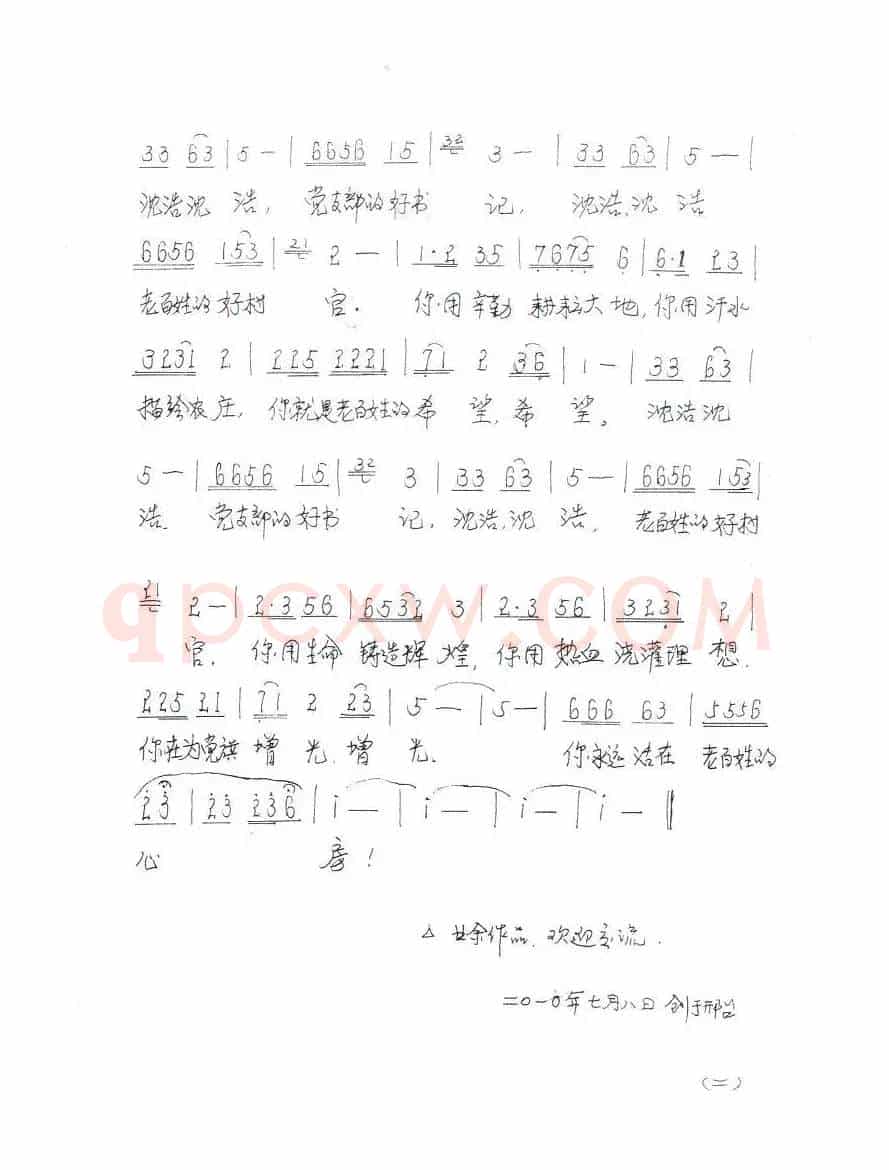 33 63 | 5 — | 6656 15 | 32 3 — | 33 63 | 5 — |
沈浩沈 浩, 党支部的好书 记, 沈浩,沈 浩
6656 153 | 21 2 — | 1·2 35 | 7675 6 | 6·1 23 |
老百姓的好村 官. 你用辛勤 耕耘大地,你用汗水
3231 2 | 225 2221 | 71 2 36 | 1 — | 33 63 |
描绘农庄, 你就是老百姓的希 望,希 望。 沈浩沈
5 — | 6656 15 | 32 3 | 33 63 | 5 — | 6656 153 |
浩. 党支部的好书 记, 沈浩,沈 浩, 老百姓的好村
21 2 — | 2·3 56 | 6532 3 | 2·3 56 | 3231 2 |
官. 你用生命 铸造辉 煌, 你用 热血 浇灌理 想.
225 21 | 71 2 23 | 5 — | 5 — | 666 63 | 5556
你在为党旗 增 光,增 光. 你永远活在 老百姓的
23 | 23 236 | i — | i — | i — | i — ‖
心 房!
△ 业余作品,欢迎交流.
二〇一〇年七月八日 创于邢台
(二)
qpcxw.com